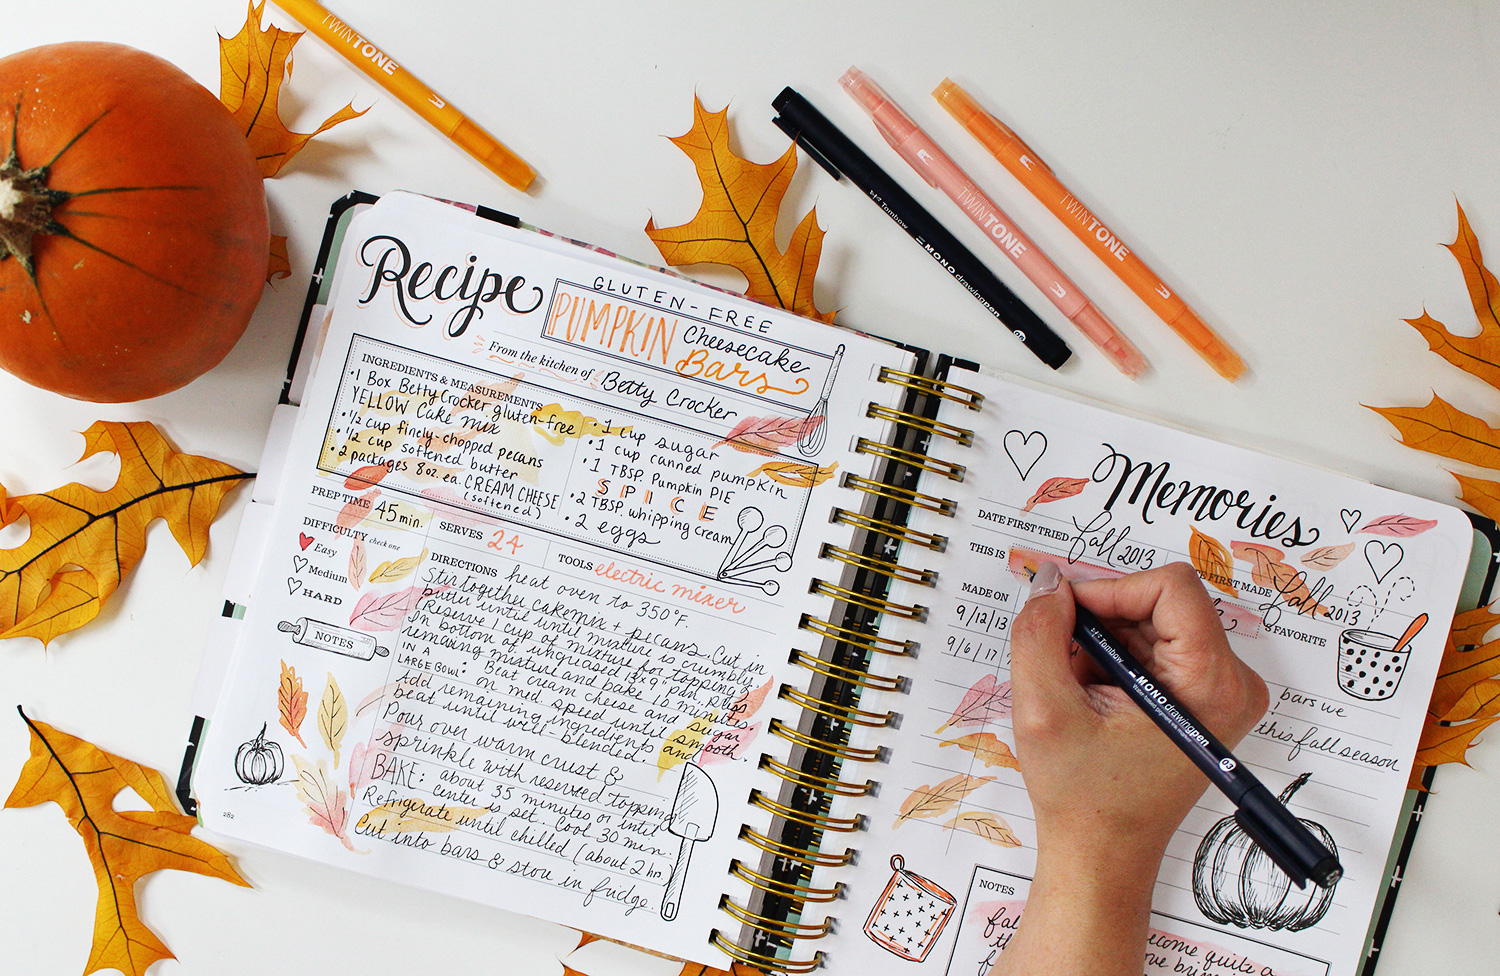 TWINTONE
Tombow MONO drawing pen
TWINTONE
TWINTONE
Recipe
GLUTEN-FREE
PUMPKIN Cheesecake
Bars
From the kitchen of Betty Crocker
INGREDIENTS & MEASUREMENTS
• 1 Box Betty Crocker gluten-free
YELLOW Cake mix
• 1/2 cup finely-chopped pecans
• 1/2 cup softened butter
• 2 packages 8oz. ea. CREAM CHEESE
(softened)
• 1 cup sugar
• 1 cup canned pumpkin
• 1 TBSP. Pumpkin PIE
SPICE
• 2 TBSP. whipping cream
• 2 eggs
PREP TIME 45 min.
SERVES 24
TOOLS electric mixer
DIFFICULTY check one
Easy
Medium
HARD
NOTES
DIRECTIONS heat oven to 350°F.
Stir together cakemix + pecans. Cut in
butter until until mixture is crumbly.
(Reserve 1 cup of mixture for topping)
In bottom of ungreased 13x9 pan, press
remaining mixture and bake 10 minutes.
IN A
LARGE BOWL: Beat cream cheese and sugar
on med speed until smooth.
Add remaining ingredients and
beat until well-blended.
Pour over warm crust &
sprinkle with reserved topping
BAKE: about 35 minutes or until
center is set. Cool 30 min.
Refrigerate until chilled (about 2 hr.)
Cut into bars & store in fridge.
282
Memories
DATE FIRST TRIED fall 2013
FIRST MADE fall 2013
THIS IS
'S FAVORITE
MADE ON
9/12/13
9/6/17
bars we
this fall season
Tombow MONO drawing pen
Water-based pigment ink
03
NOTES
fal
th
f
ecome quite a
ove bring